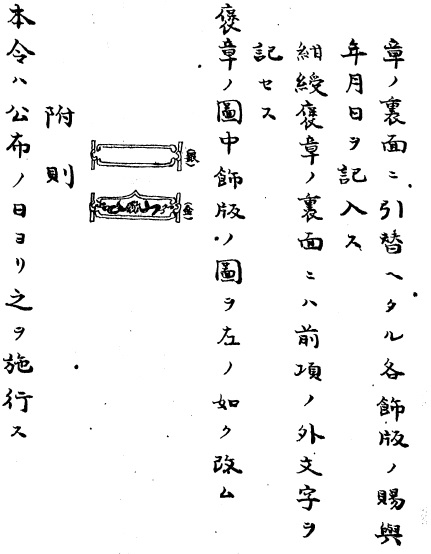 章ノ裏面ニ引替ヘタル各飾版ノ賜與
年月日ヲ記入ス
紺綬褒章ノ裏面ニハ前項ノ外文字ヲ
記セス
褒章ノ圖中飾版ノ圖ヲ左ノ如ク改ム
(銀)
(金)
附則
本令ハ公布ノ日ヨリ之ヲ施行ス